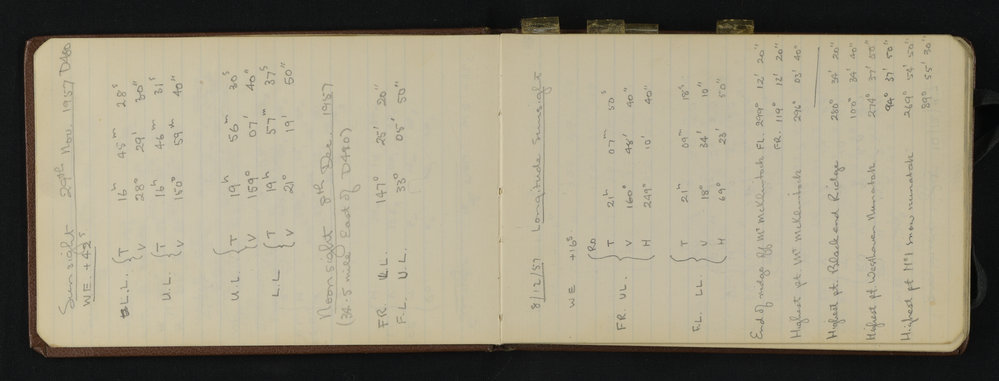 Sunsight 29th Nov. 1957 D480
WE +42s
L.L. { T 16h 45m 28s
V 28° 29' 30"
U.L. { T 16h 46m 31s
V 150° 59m 40"
U.L. { T 19h 56m 30s
V 159° 07' 40"
L.L. { T 19h 57m 37s
V 21° 19' 50"
Noonsight 8th Dec. 1957
(34.5 mile East of D480)
F.R. U.L. 147° 25' 20"
F.L. U.L. 33° 05' 50"
8/12/57 Longitude Sunsight
WE +16s
RO
F.R. UL. { T 21h 07m 50s
V 160° 48' 40"
H 249° 10' 40"
F.L. LL. { T 21h 09m 18s
V 18° 34' 10"
H 69° 23' 50"
End of ridge off Mt McClintock FL. 299° 12' 20"
FR. 119° 12' 20"
Highest pt. Mt McClintock 296° 03' 40"
Highest pt. Black end Ridge 280° 34' 20"
100° 34' 40"
Highest pt Westhaven Nunatak 274° 37' 50"
94° 37' 50"
Highest pt No 1 snow nunatak 269° 54' 50"
89° 55' 30"